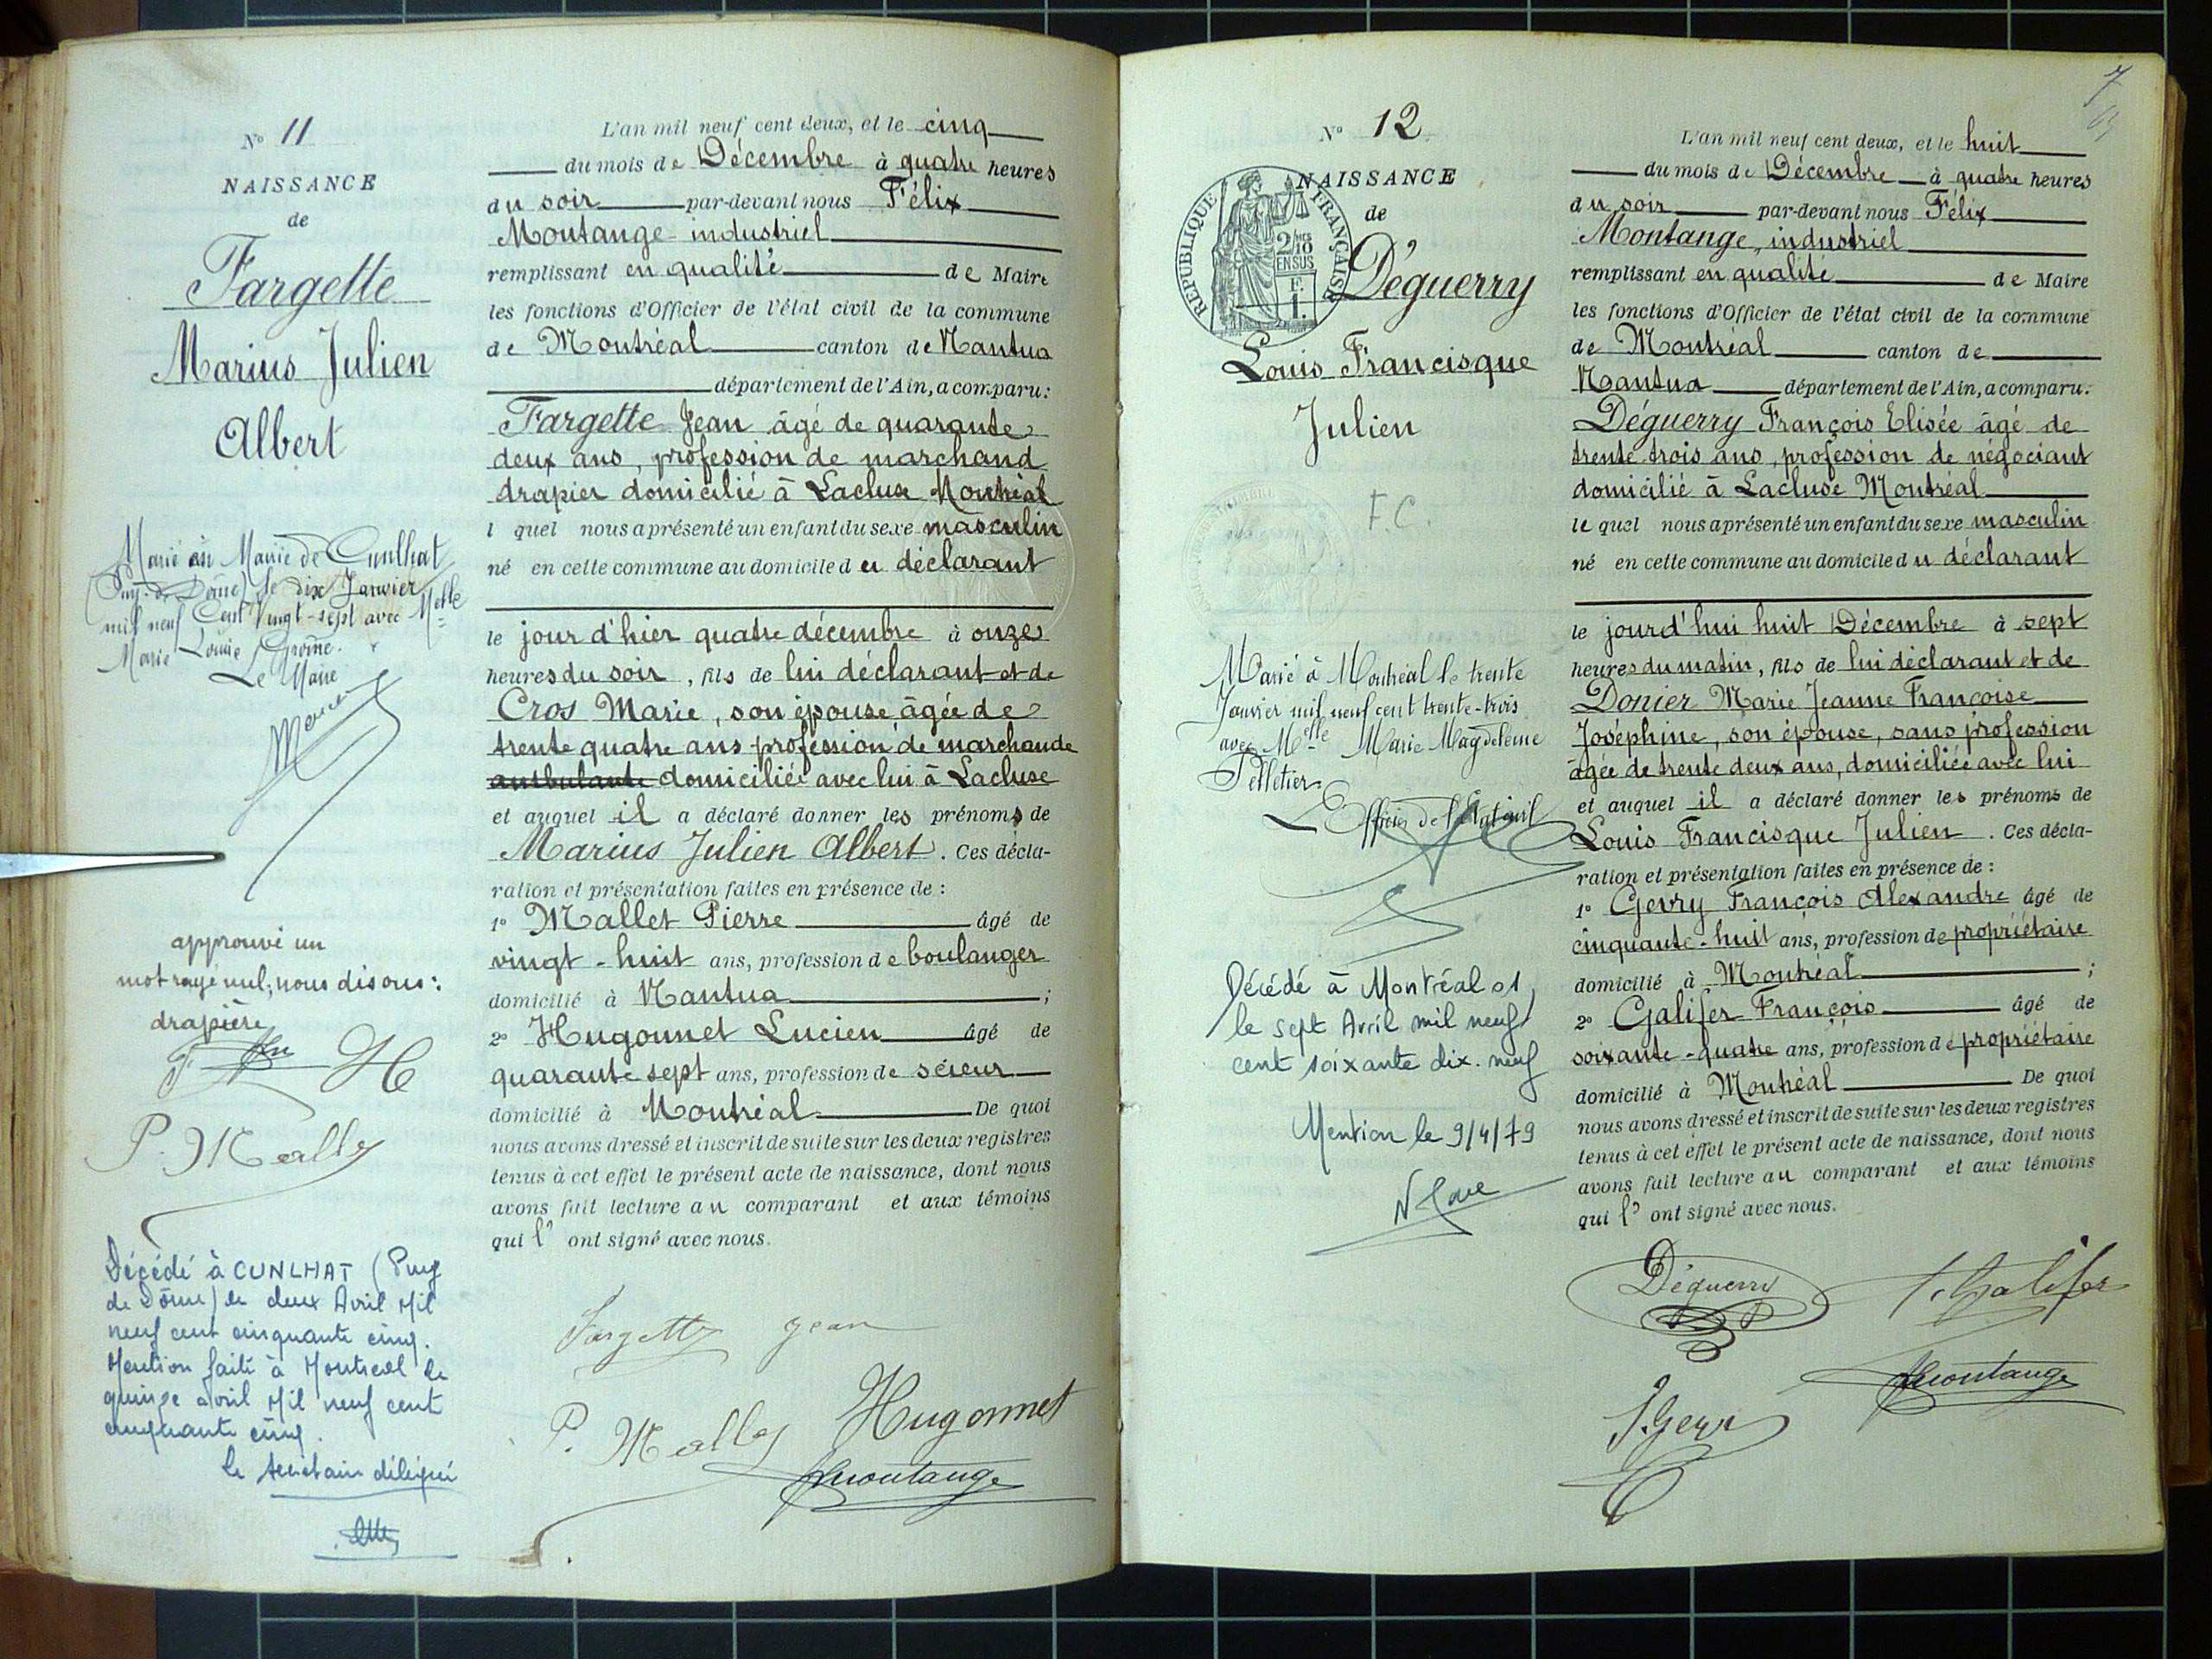 N° 11
NAISSANCE
de
Fargette
Marius Julien
Albert
Marié en Mairie de Cunlhat
(Puy-de-Dôme) le dix Janvier
mil neuf Cent Vingt-sept avec Melle
Marie Louise
Le Maire
approuvé un
mot rayé nul; nous disons:
drapière
H
P. Mallet
Décédé à CUNLHAT (Puy
de Dôme) le deux Avril Mil
neuf cent cinquante cinq.
Mention faite à Montreal le
quinze avril Mil neuf cent
cinquante cinq.
le secrétaire délégué
L'an mil neuf cent deux, et le cinq
du mois de Décembre à quatre heures
du soir par-devant nous Félix
Montange industriel
remplissant en qualité de Maire
les fonctions d'Officier de l'état civil de la commune
de Montréal canton de Nantua
département de l'Ain, a comparu:
Fargette Jean âgé de quarante
deux ans, profession de marchand
drapier domicilié à Lacluse Montréal
l quel nous a présenté un enfant du sexe masculin
né en cette commune au domicile du déclarant
le jour d'hier quatre décembre à onze
heures du soir, fils de lui déclarant et de
Cros Marie, son épouse âgée de
trente quatre ans profession de marchande
ambulante domiciliée avec lui à Lacluse
et auquel il a déclaré donner les prénoms de
Marius Julien Albert. Ces décla-
ration et présentation faites en présence de:
1° Mallet Pierre âgé de
vingt-huit ans, profession de boulanger
domicilié à Nantua;
2° Hugonnet Lucien âgé de
quarante sept ans, profession de scieur
domicilié à Montréal De quoi
nous avons dressé et inscrit de suite sur les deux registres
tenus à cet effet le présent acte de naissance, dont nous
avons fait lecture au comparant et aux témoins
qui l' ont signé avec nous.
Fargette Jean
P. Mallet Hugonnet
Montange
7
N° 12
NAISSANCE
de
RÉPUBLIQUE FRANÇAISE
2/10 EN SUS
F. 1.
Déguerry
Louis Francisque
Julien
F.C.
Marié à Montréal le trente
Janvier mil neuf cent trente-trois
avec Melle Marie Magdeleine
Pelletier
L'Officier de l'Etat civil
Décédé à Montréal 01
le sept Avril mil neuf
cent soixante dix. neuf
Mention le 9/4/79
L'an mil neuf cent deux, et le huit
du mois de Décembre à quatre heures
du soir par-devant nous Félix
Montange, industriel
remplissant en qualité de Maire
les fonctions d'Officier de l'état civil de la commune
de Montréal canton de
Nantua département de l'Ain, a comparu:
Déguerry François Elisée âgé de
trente trois ans, profession de négociant
domicilié à Lacluse Montréal
le quel nous a présenté un enfant du sexe masculin
né en cette commune au domicile du déclarant
le jourd'hui huit Décembre à sept
heures du matin, fils de lui déclarant et de
Donier Marie Jeanne Françoise
Joséphine, son épouse, sans profession
âgée de trente deux ans, domiciliée avec lui
et auquel il a déclaré donner les prénoms de
Louis Francisque Julien. Ces décla-
ration et présentation faites en présence de:
1° Gevry François Alexandre âgé de
cinquante-huit ans, profession de propriétaire
domicilié à Montréal;
2° Galifer François âgé de
soixante-quatre ans, profession de propriétaire
domicilié à Montréal De quoi
nous avons dressé et inscrit de suite sur les deux registres
tenus à cet effet le présent acte de naissance, dont nous
avons fait lecture au comparant et aux témoins
qui l' ont signé avec nous.
Déguerry F. Galifer
Montange
F. Gevry